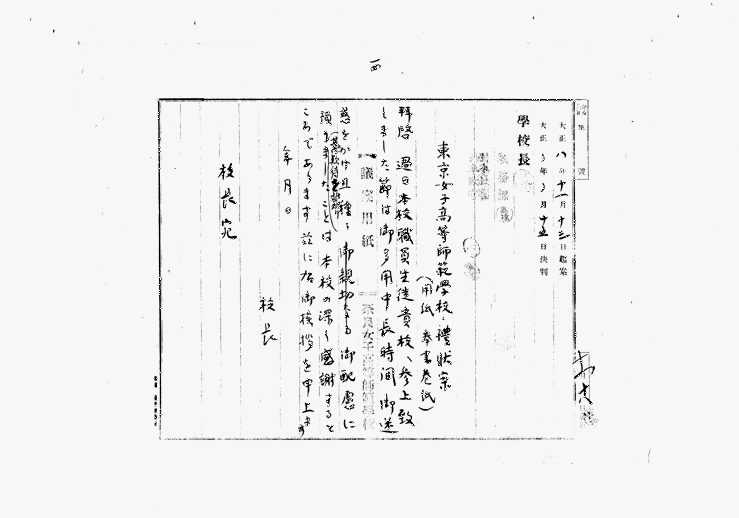 一四
第 號
大正八年十一月十三日起案
大正 年 月十五日決判
學校長
東京女子高等師範學校ヘ禮狀案
(用紙 奉書巻紙)
拜啓 過日本校職員生徒貴校ヘ参上致
しました節は御多用中長時間御
惑をかけ且種々御親切なる御配慮に
預りましたことは本校の深く感謝すると
ころであります茲に右御挨拶を申上ます
年月日
校長
校長宛
議案用紙
奈良女子高等師範學校